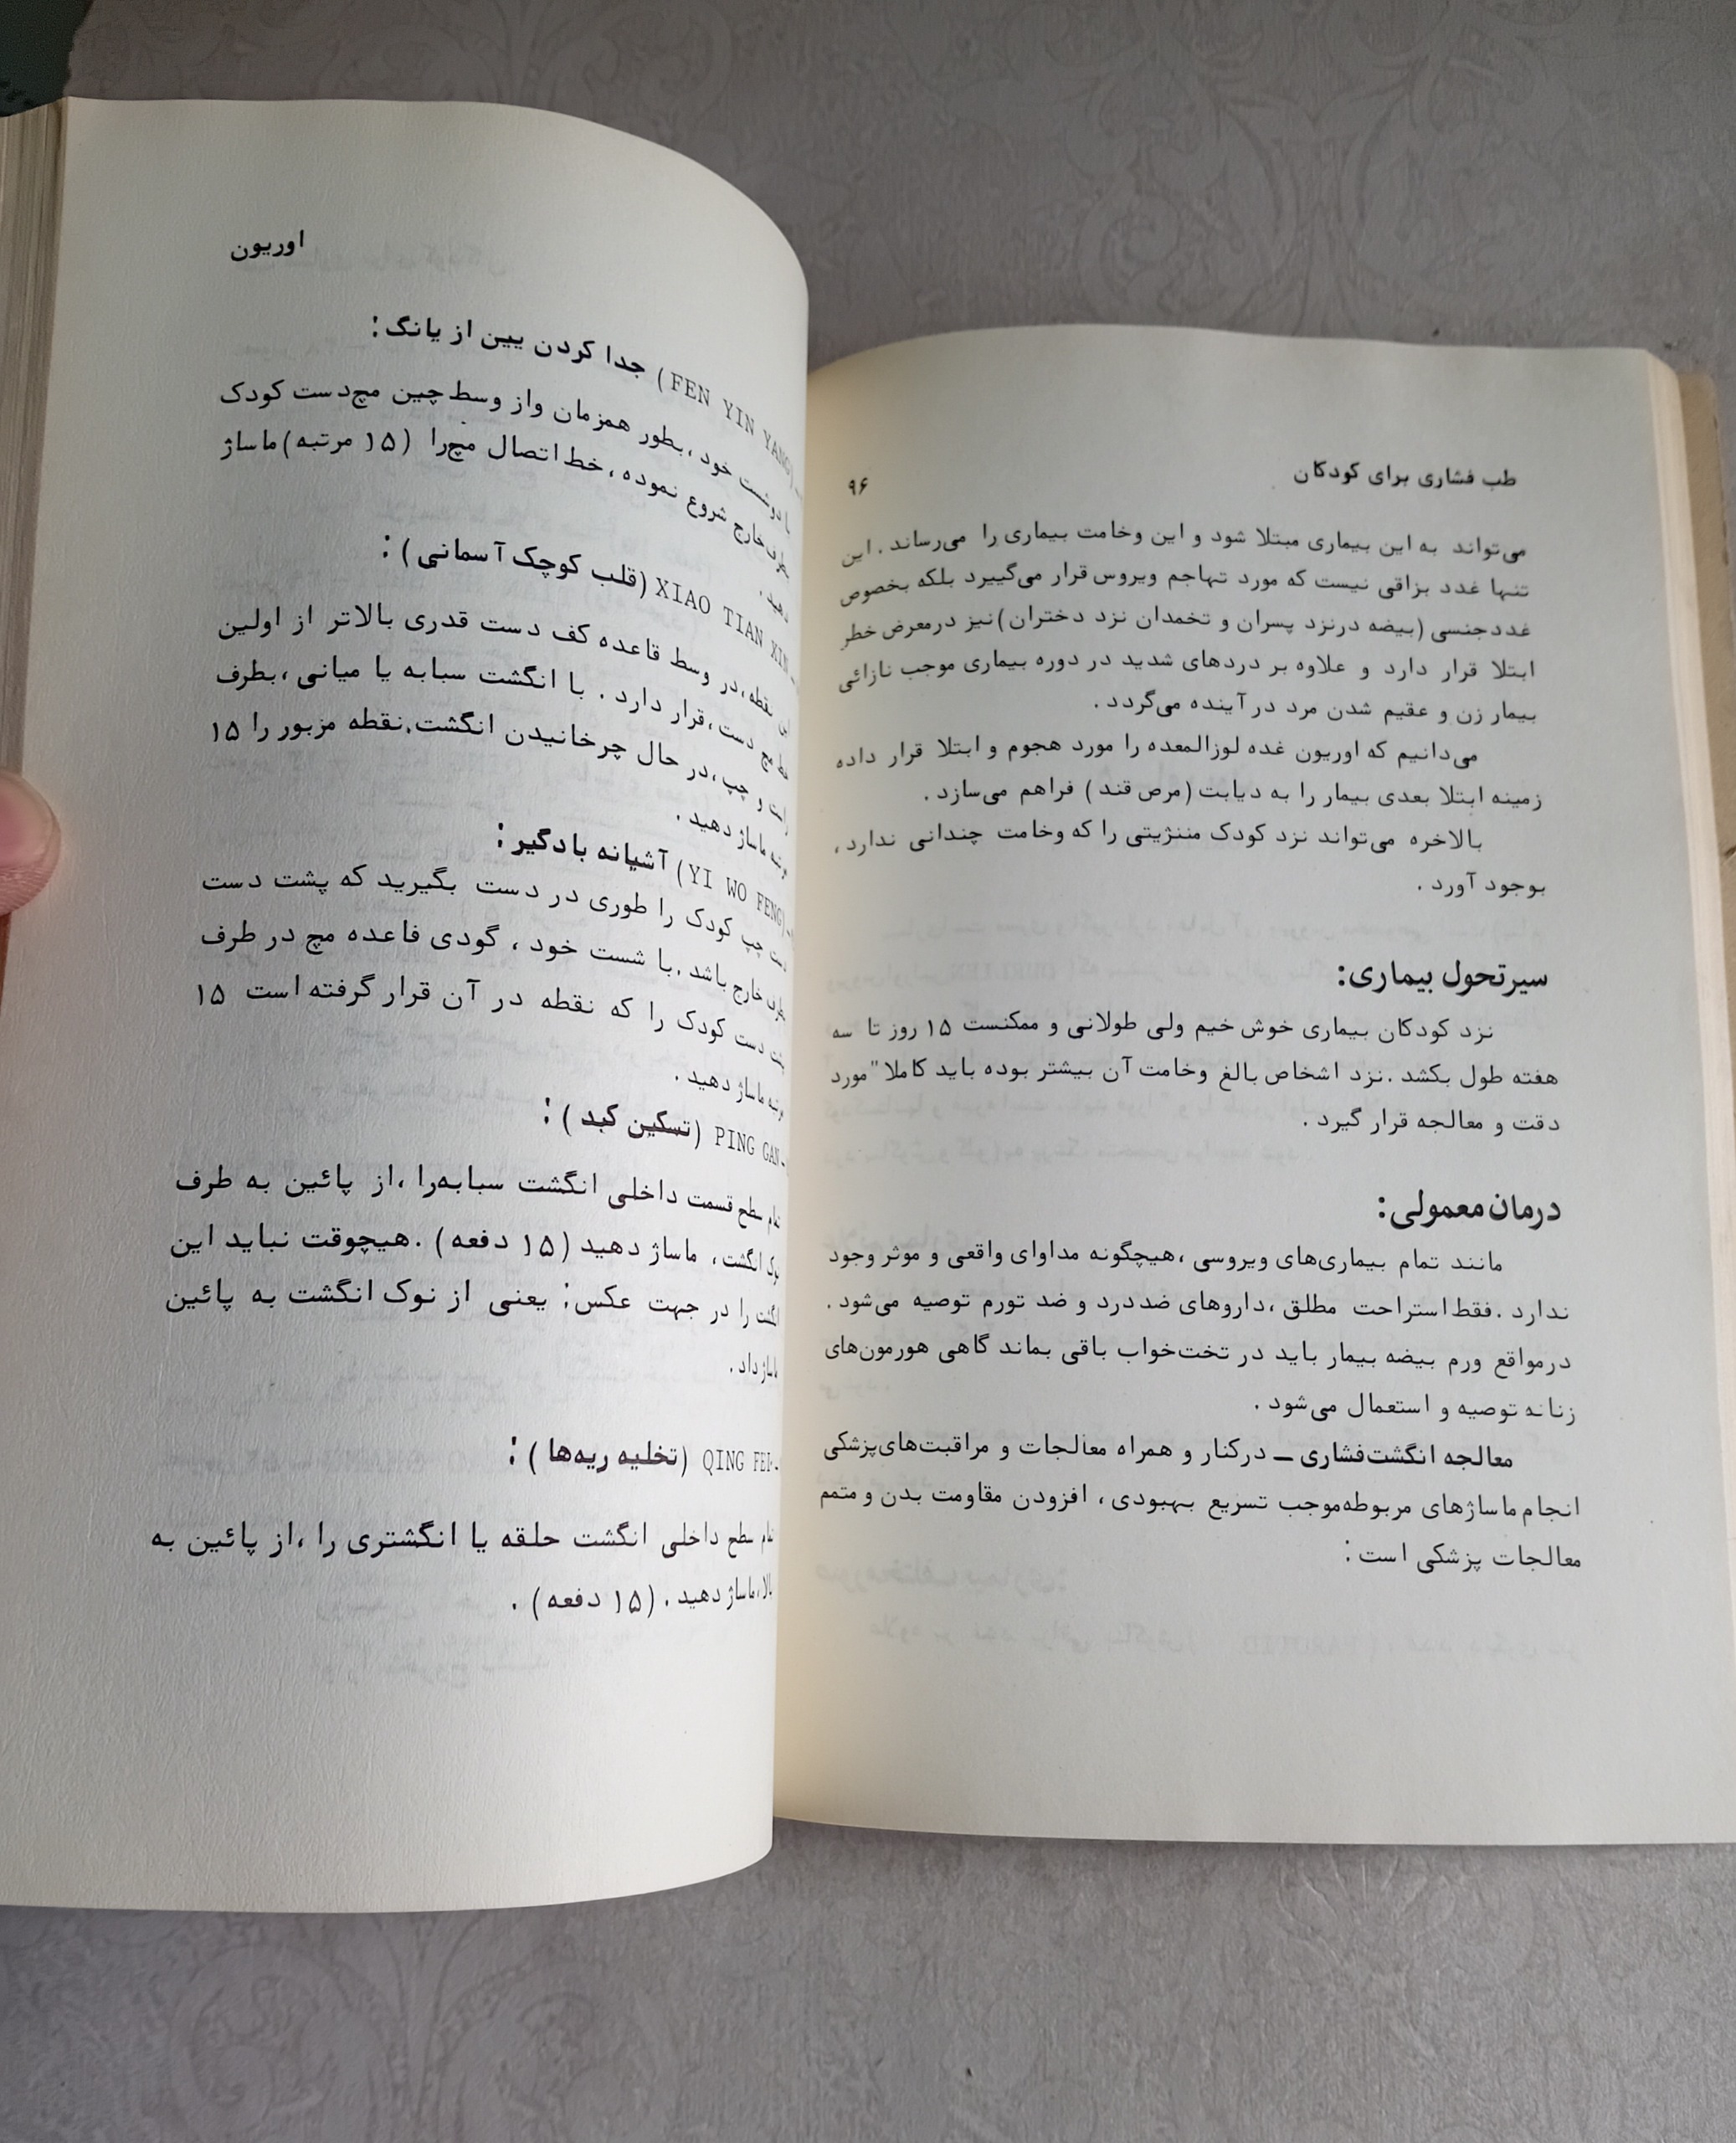 طب فشاری برای کودکان
۹۶
می‌تواند به این بیماری مبتلا شود و این وخامت بیماری را می‌رساند . این
تنها غدد بزاقی نیست که مورد تهاجم ویروس قرار می‌گییرد بلکه بخصوص
غددجنسی (بیضه درنزد پسران و تخمدان نزد دختران) نیز درمعرض خطر
ابتلا قرار دارد و علاوه بر دردهای شدید در دوره بیماری موجب نازائی
بیمار زن و عقیم شدن مرد در آینده می‌گردد .
می‌دانیم که اوریون غده لوزالمعده را مورد هجوم و ابتلا قرار داده
زمینه ابتلا بعدی بیمار را به دیابت (مرص قند) فراهم می‌سازد .
بالاخره می‌تواند نزد کودک مننژیتی را که وخامت چندانی ندارد ،
بوجود آورد .
سیرتحول بیماری:
نزد کودکان بیماری خوش خیم ولی طولانی و ممکنست ۱۵ روز تا سه
هفته طول بکشد . نزد اشخاص بالغ وخامت آن بیشتر بوده باید کاملا" مورد
دقت و معالجه قرار گیرد .
درمان معمولی:
مانند تمام بیماری‌های ویروسی ، هیچگونه مداوای واقعی و موثر وجود
ندارد . فقط استراحت مطلق ، داروهای ضددرد و ضد تورم توصیه می‌شود .
درمواقع ورم بیضه بیمار باید در تخت‌خواب باقی بماند گاهی هورمون‌های
زنانه توصیه و استعمال می‌شود .
معالجه انگشت‌فشاری ــ درکنار و همراه معالجات و مراقبت‌های‌پزشکی
انجام ماساژهای مربوطه‌موجب تسریع بهبودی ، افزودن مقاومت بدن و متمم
معالجات پزشکی است :
اوریون
(FEN YIN YANG) جدا کردن یین از یانگ :
با دوشست خود ، بطور همزمان واز وسط چین مچ‌دست کودک
بطرف خارج شروع نموده ، خط اتصال مچ‌را (۱۵ مرتبه) ماساژ
دهید .
XIAO TIAN XIN (قلب کوچک آسمانی) :
این نقطه ، در وسط قاعده کف دست قدری بالاتر از اولین
خط مچ دست ، قرار دارد . با انگشت سبابه یا میانی ، بطرف
راست و چپ ، در حال چرخانیدن انگشت ، نقطه مزبور را ۱۵
مرتبه ماساژ دهید .
(YI WO FENG) آشیانه بادگیر :
دست چپ کودک را طوری در دست بگیرید که پشت دست
بطرف خارج باشد . با شست خود ، گودی فاعده مچ در طرف
پشت دست کودک را که نقطه در آن قرار گرفته است ۱۵
مرتبه ماساژ دهید .
PING GAN (تسکین کبد) :
تمام سطح قسمت داخلی انگشت سبابه‌را ، از پائین به طرف
نوک انگشت ، ماساژ دهید (۱۵ دفعه) . هیچوقت نباید این
انگشت را در جهت عکس ؛ یعنی از نوک انگشت به پائین
ماساژ داد .
QING FEI (تخلیه ریه‌ها) :
تمام سطح داخلی انگشت حلقه یا انگشتری را ، از پائین به
بالا ، ماساژ دهید . (۱۵ دفعه) .